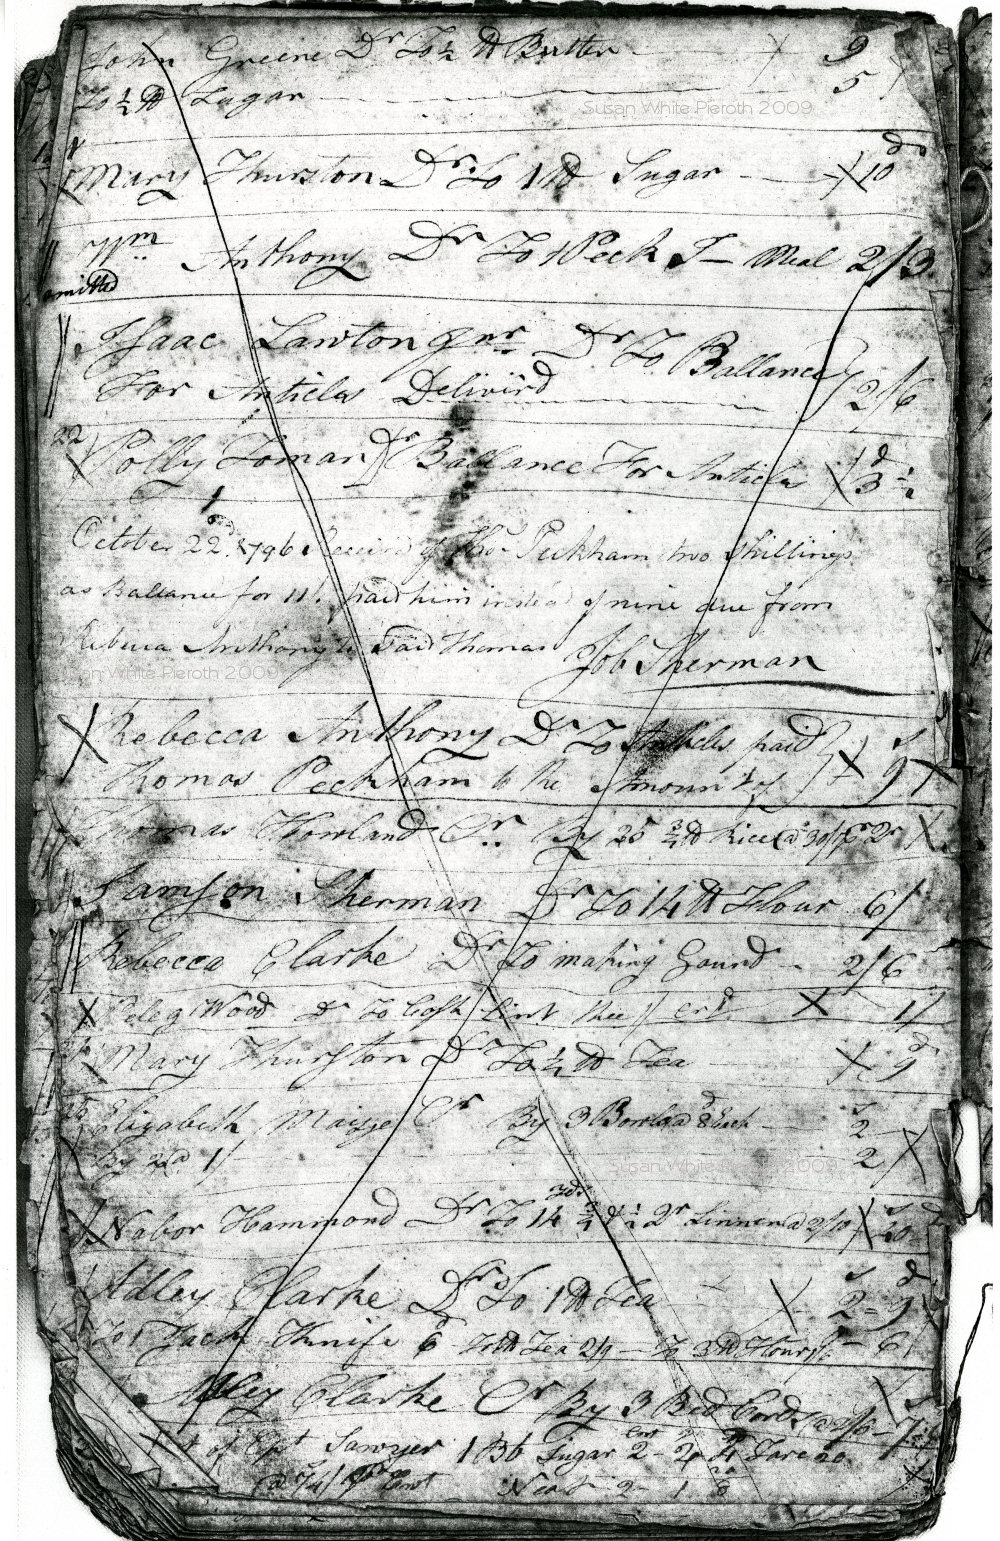 John Greene Dr To ½ ℔ Butter 9
To ½ ℔ Sugar 5
Susan White Pieroth 2009
Mary Thurston Dr To 1 ℔ Sugar 10d
Wm Anthony Dr To 1 Peck I Meal 2/3
omitted
Isaac Lawton Dr To Ballance
For Articles Deliverd 2/6
22 Polly Toman Dr Ballance For Articles 3d ½
October 22d 1796 Received of Tho Peckham two Shillings
as Ballance for 11/. paid him instead of nine due from
Rebecca Anthony to Said Thomas Job Sherman
Susan White Pieroth 2009
Rebecca Anthony Dr To Articles paid
Thomas Peckham to the Amount of 9
Thomas Howland Cr By 25 ¾ ℔ Rice
Samson Sherman Dr To 14 ℔ Flour 6/
Rebecca Clarke Dr To making Gound 2/6
Peleg Wood Dr To Cash Lint thee 1/ 1/
Mary Thurston Dr To ¼ ℔ Tea 9d
Elizabeth Cr By 3 Bowls 8d Each 2
By 2 1/ 2
Susan White Pieroth 2009
Nabor Hammond Dr To 14 ¾ Linnen
Adley Clarke Dr To 1 ℔ Tea 2 = 9
To 1 Jack Knife 6d To 1 ℔ Tea 2/9 To 3 ℔ Flour 6
Adley Clarke Cr By 3 Bed Cords
of Cpt Sawyer 1 Bb Sugar 2 - 2 Tare 20
Neat 2 - 1 8